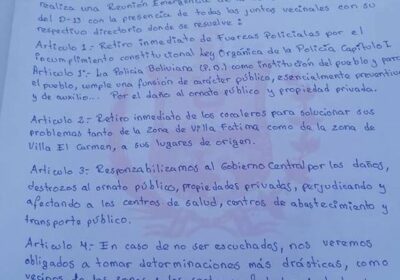 realiza una Reunión Emergencia
del D-13 con la presencia de todas las juntas vecinales con su
respectivo directorio donde se resuelve:
Articulo 1:- Retiro inmediato de Fuerzas Policiales por el
incumplimiento constitucional ley Orgánica de la Policía Capítulo I.
Articulo 5º- La Policía Boliviana (P.B.) como institución del pueblo y para
el pueblo, cumple una función de carácter público, esencialmente preventiva
y de auxilio... Por el daño al ornato público y propiedad privada.
Articulo 2:- Retiro inmediato de los cocaleros para solucionar sus
problemas tanto de la zona de Villa Fatima como de la zona de
Villa El Carmen, a sus lugares de origen.
Articulo 3:- Responzabilizamos al Gobierno Central por los daños,
destrozos al ornato público, propiedades privadas, perjudicando y
afectando a los centros de salud, centros de abastecimiento y
transporte público.
Articulo 4:- En caso de no ser escuchados, nos veremos
obligados a tomar determinaciones más drásticas, como
vecinos de las zonas